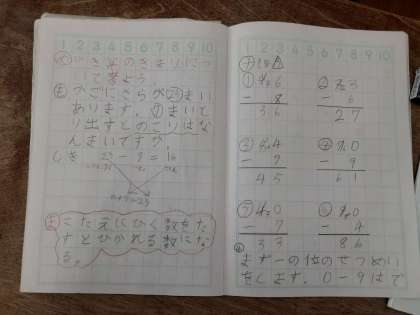 1 2 3 4 5 6 7 8 9 10
ひきざんのきまりにつ
いて考よう。
も かごにさらが23まい
あります。7まいと
り出すとのこりはな
んまいですか。
しき 23-7=16
ま こたえにひく数をた
すとひかれる数にな
る。
1 2 3 4 5 6 7 8 9 10
① 46
- 8
36
② 33
- 6
27
③ 54
- 9
45
④ 70
- 9
61
⑤ 40
- 7
33
⑥ 90
- 4
86
まず一の位のせつめい
をします。0-9はで